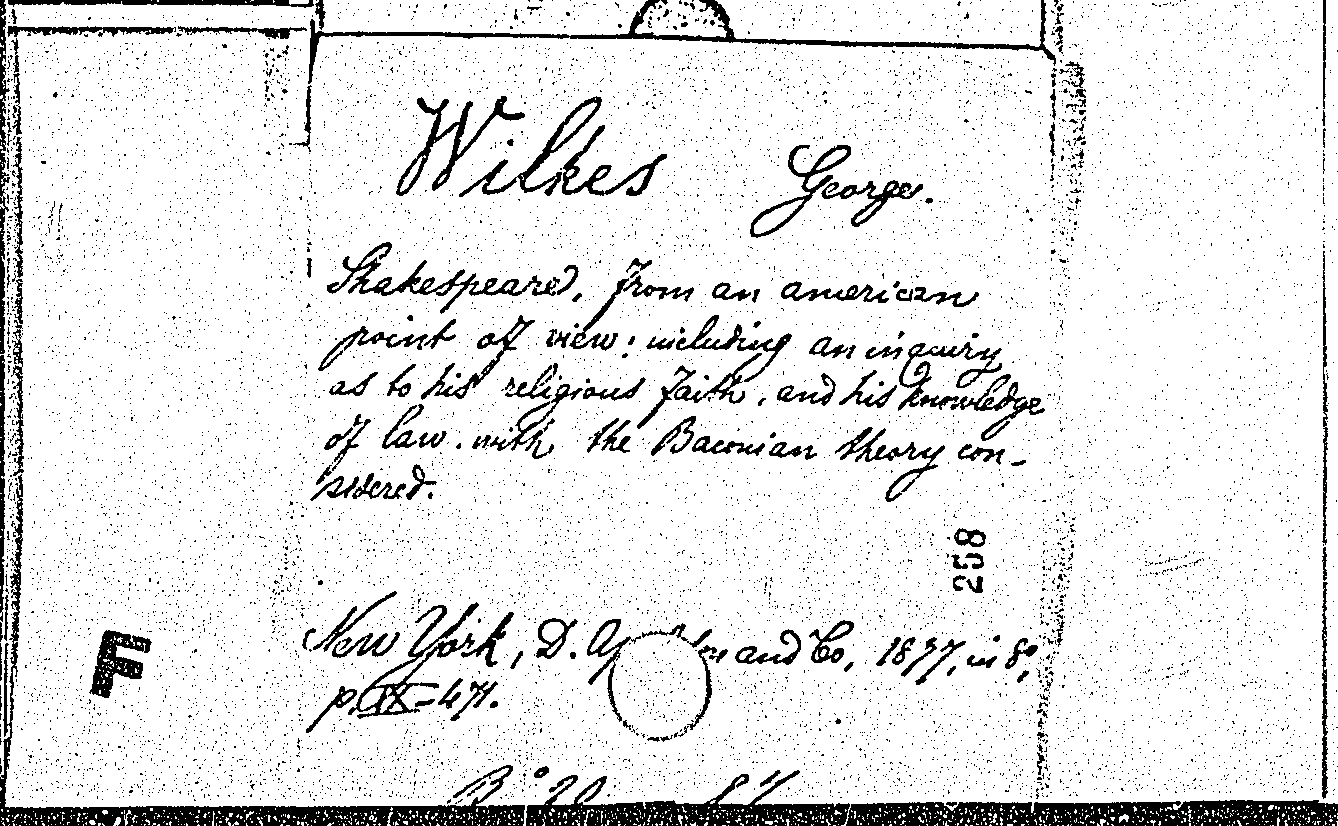 Wilkes George.
Shakespeare, from an american
point of view; including an inquiry
as to his religious faith, and his knowledge
of law. with the Baconian theory con-
sidered.
258
New York, D. and Co, 1877, in 8°,
p. IX-471.
F